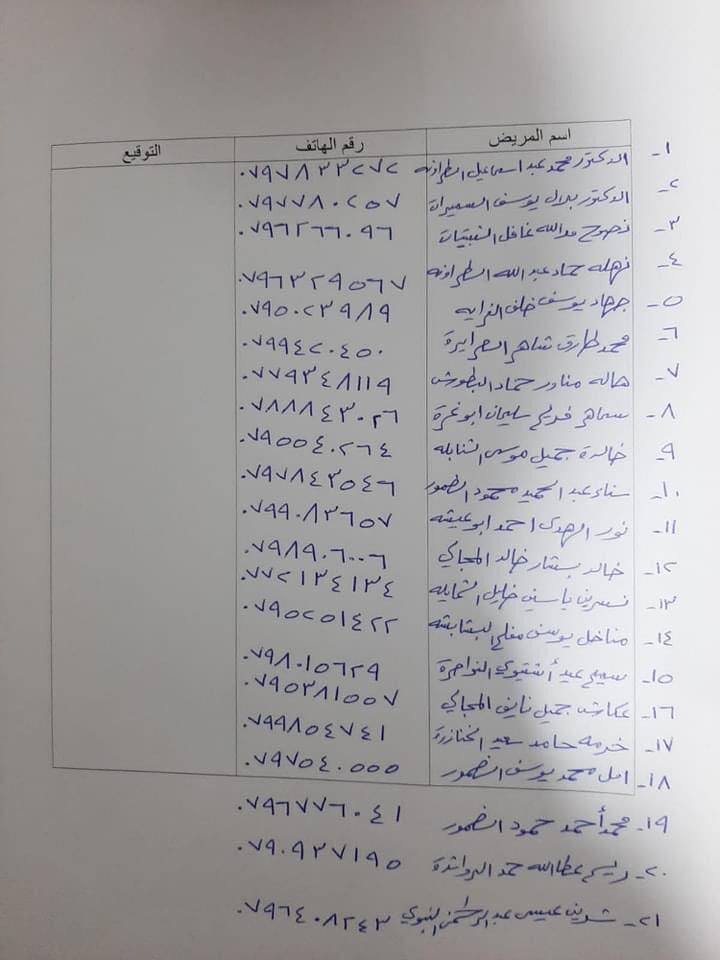 اسم المريض رقم الهاتف التوقيع
١- الدكتور محمد عبد اسماعيل الطراونه ٠٧٩٧٨٣٣٢٧٢
٢- الدكتور بلال يوسف السميرات ٠٧٩٧٧٨٠٢٥٧
٣- نصوح عبدالله غافل الثبيتات ٠٧٩٦٢٦٦٠٩٦
٤- نهله حماد عبد الله الطراونه ٠٧٩٦٣٢٩٥٦٧
٥- جهاد يوسف خلف الغرايه ٠٧٩٥٠٢٣٩٨٩
٦- محمد طارق شاهر الصرايرة ٠٧٩٩٤٢٠٤٥٠
٧- هاله مناور حماد البطوش ٠٧٧٩٣٤٨١١٩
٨- سماهر سليمان ابو غرة ٠٧٨٨٨٤٣٠٢٦
٩- خالدة جميل موسى الشنابله ٠٧٩٥٥٤٠٢٦٤
١٠- سناء عبد الحميد محمود الضمور ٠٧٩٧٨٤٣٥٤٦
١١- نور الهدى احمد ابو عيشه ٠٧٩٩٠٨٣٦٥٧
١٢- خالد بشار خالد المجالي ٠٧٩٨٩٠٦٠٠٦
١٣- نسرين ياسين خليل الشمايله ٠٧٧٢١٣٤١٣٤
١٤- مناخل يوسف مفلح البشابشه ٠٧٩٥٢٥١٤٢٢
١٥- سميح عيد أشتيوي النواصرة ٠٧٩٨٠١٥٦٢٩
١٦- عكاش جميل نايف المجالي ٠٧٩٥٣٨١٥٥٧
١٧- خزمه حامد سعيد الخنازرة ٠٧٩٩٨٥٤٧٤١
١٨- امل محمد يوسف الضمور ٠٧٩٧٥٤٠٥٥٥
١٩- محمد أحمد حمود الضمور ٠٧٩٦٧٧٦٠٤١
٢٠- ريم عطاالله حمد الرواشدة ٠٧٩٠٩٣٧١٩٥
٢١- شرين عيسى عبدالرحمن النبوي ٠٧٩٦٤٠٨٢٤٣